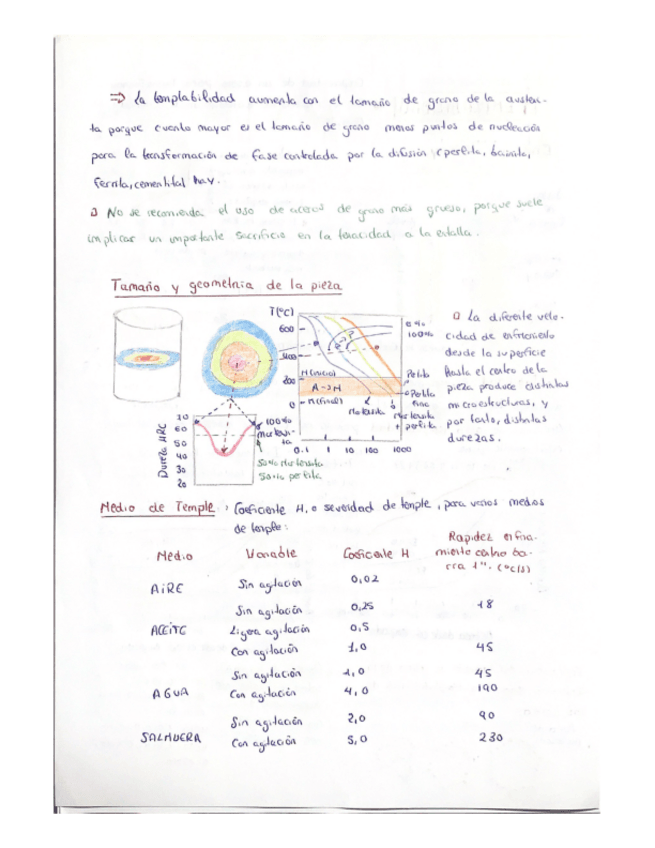 ⇒ la templabilidad aumenta con el tamaño de grano de la austeni-
ta porque cuanto mayor es el tamaño de grano menos puntos de nucleación
para la transformación de fase controlada por la difusión (perlita, bainita,
ferrita, cementita) hay.
No se recomienda el uso de aceros de grano más grueso, porque suele
implicar un importante sacrificio en la tenacidad a la entalla.
Tamaño y geometria de la pieza
T(ºC)
600
400
200
0
M(inicio)
A→M
M(final)
Martensita
Martensita
+ perlita
0%
100%
Perlita
Perlita
fina
0.1 1 10 100 1000
La diferente velo-
cidad de enfriamiento
desde la superficie
hasta el centro de la
pieza produce distintas
microestructuras, y
por tanto, distintas
durezas.
Dureza HRC
70
60
50
40
30
20
100%
martensi-
ta
50% Martensita
50% perlita
Medio de Temple: Coeficiente H, o severidad de temple, para varios medios
de temple:
Medio Variable Coeficiente H Rapidez enfria-
miento centro ba-
rra 1". (ºC/s)
AIRE Sin agitación 0,02
Sin agitación 0,25 18
ACEITE Ligera agitación 0,5
Con agitación 1,0 45
Sin agitación 1,0 45
AGUA Con agitación 4,0 190
Sin agitación 2,0 90
SALMUERA Con agitación 5,0 230